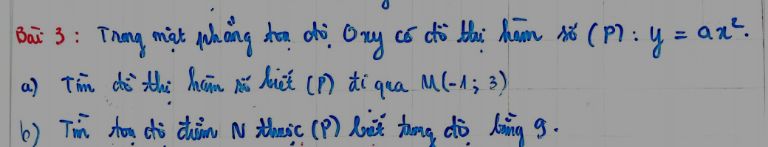 Bài 3 : Trong mặt phẳng tọa độ Oxy có đồ thị hàm số (P) : y = ax².
a) Tìm đồ thị hàm số biết (P) đi qua M(-1; 3)
b) Tìm tọa độ điểm N thuộc (P) biết tung độ bằng 9.